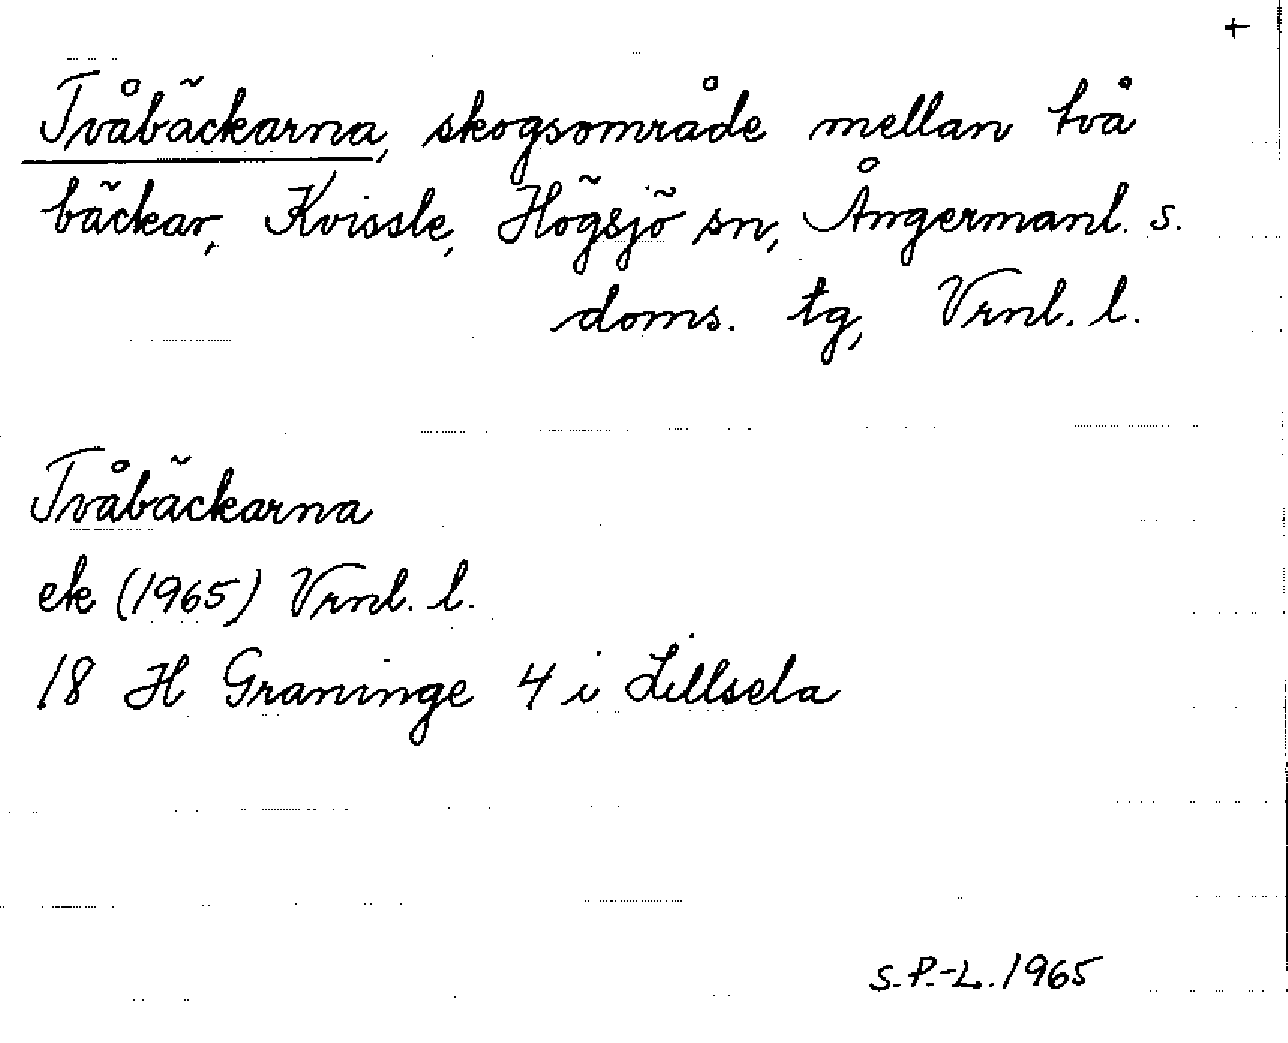 +
Tvåbäckarna, skogsområde mellan två
bäckar, Kvissle, Högsjö sn, Ångermanl. s.
doms. tg, Vrnl. l.
Tvåbäckarna
ek (1965) Vrnl. l.
18 H Graninge 4 i Lillsela
S.P.-L. 1965